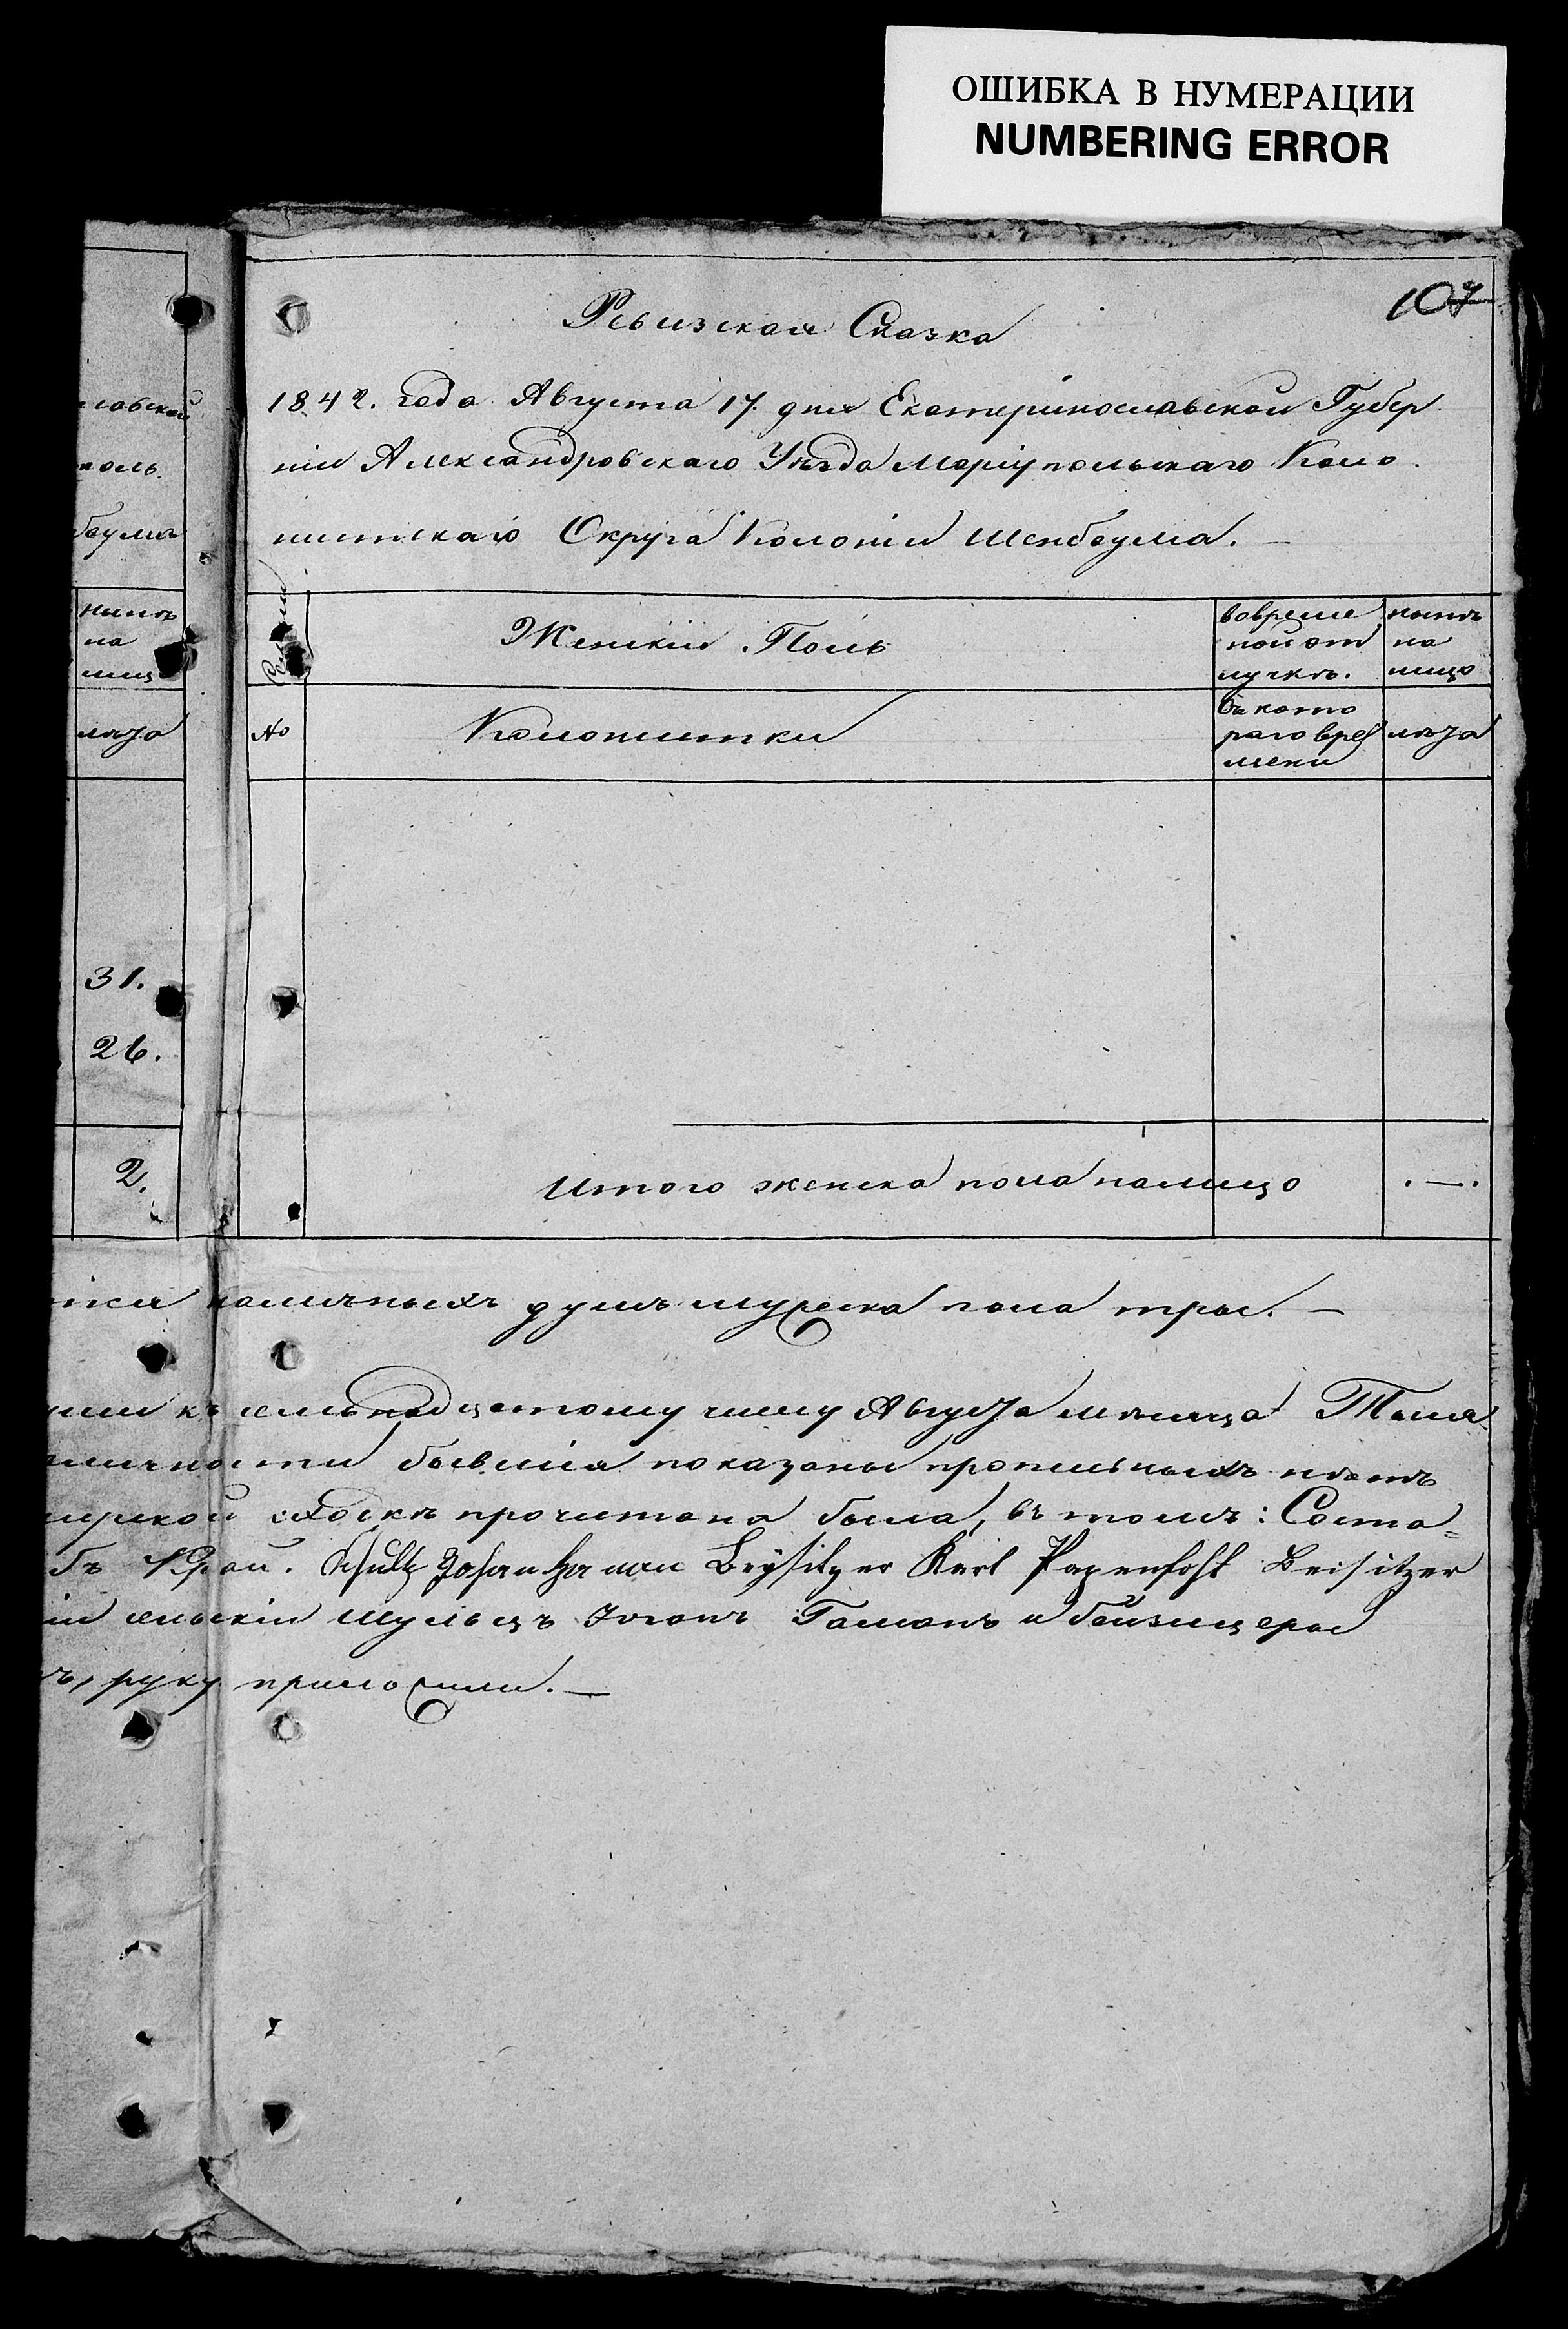 ОШИБКА В НУМЕРАЦИИ
NUMBERING ERROR
107
Ревизская Сказка
1842. года Августа 17. дня Екатеринославской Губер
ніи Александровскаго Уѣзда Маріупольскаго Коло
нистскаго Округа Колоніи Шенбаума. —
нынѣ
на
лицо
лѣта
31.
26.
2.
Женскій Полъ
во време
ной от
лучкѣ.
нынѣ
на
лицо
№
Колонистки
Съ кото
раго вре
мени
лѣта
Итого женска пола налицо . — .
наличныхъ душъ мужеска пола трое. —
къ семьнадцатому числу Августа мѣсяца
бывшія показаны прописныхъ нѣтъ
сходкѣ прочитана была, въ томъ: Соста=
Край. Schultz Johan Haman Beÿsitzer Karl Papenfoht Beisitzer
сельскій Шульцъ Іоганъ Гаманъ и бейзицеры
руку приложили. —